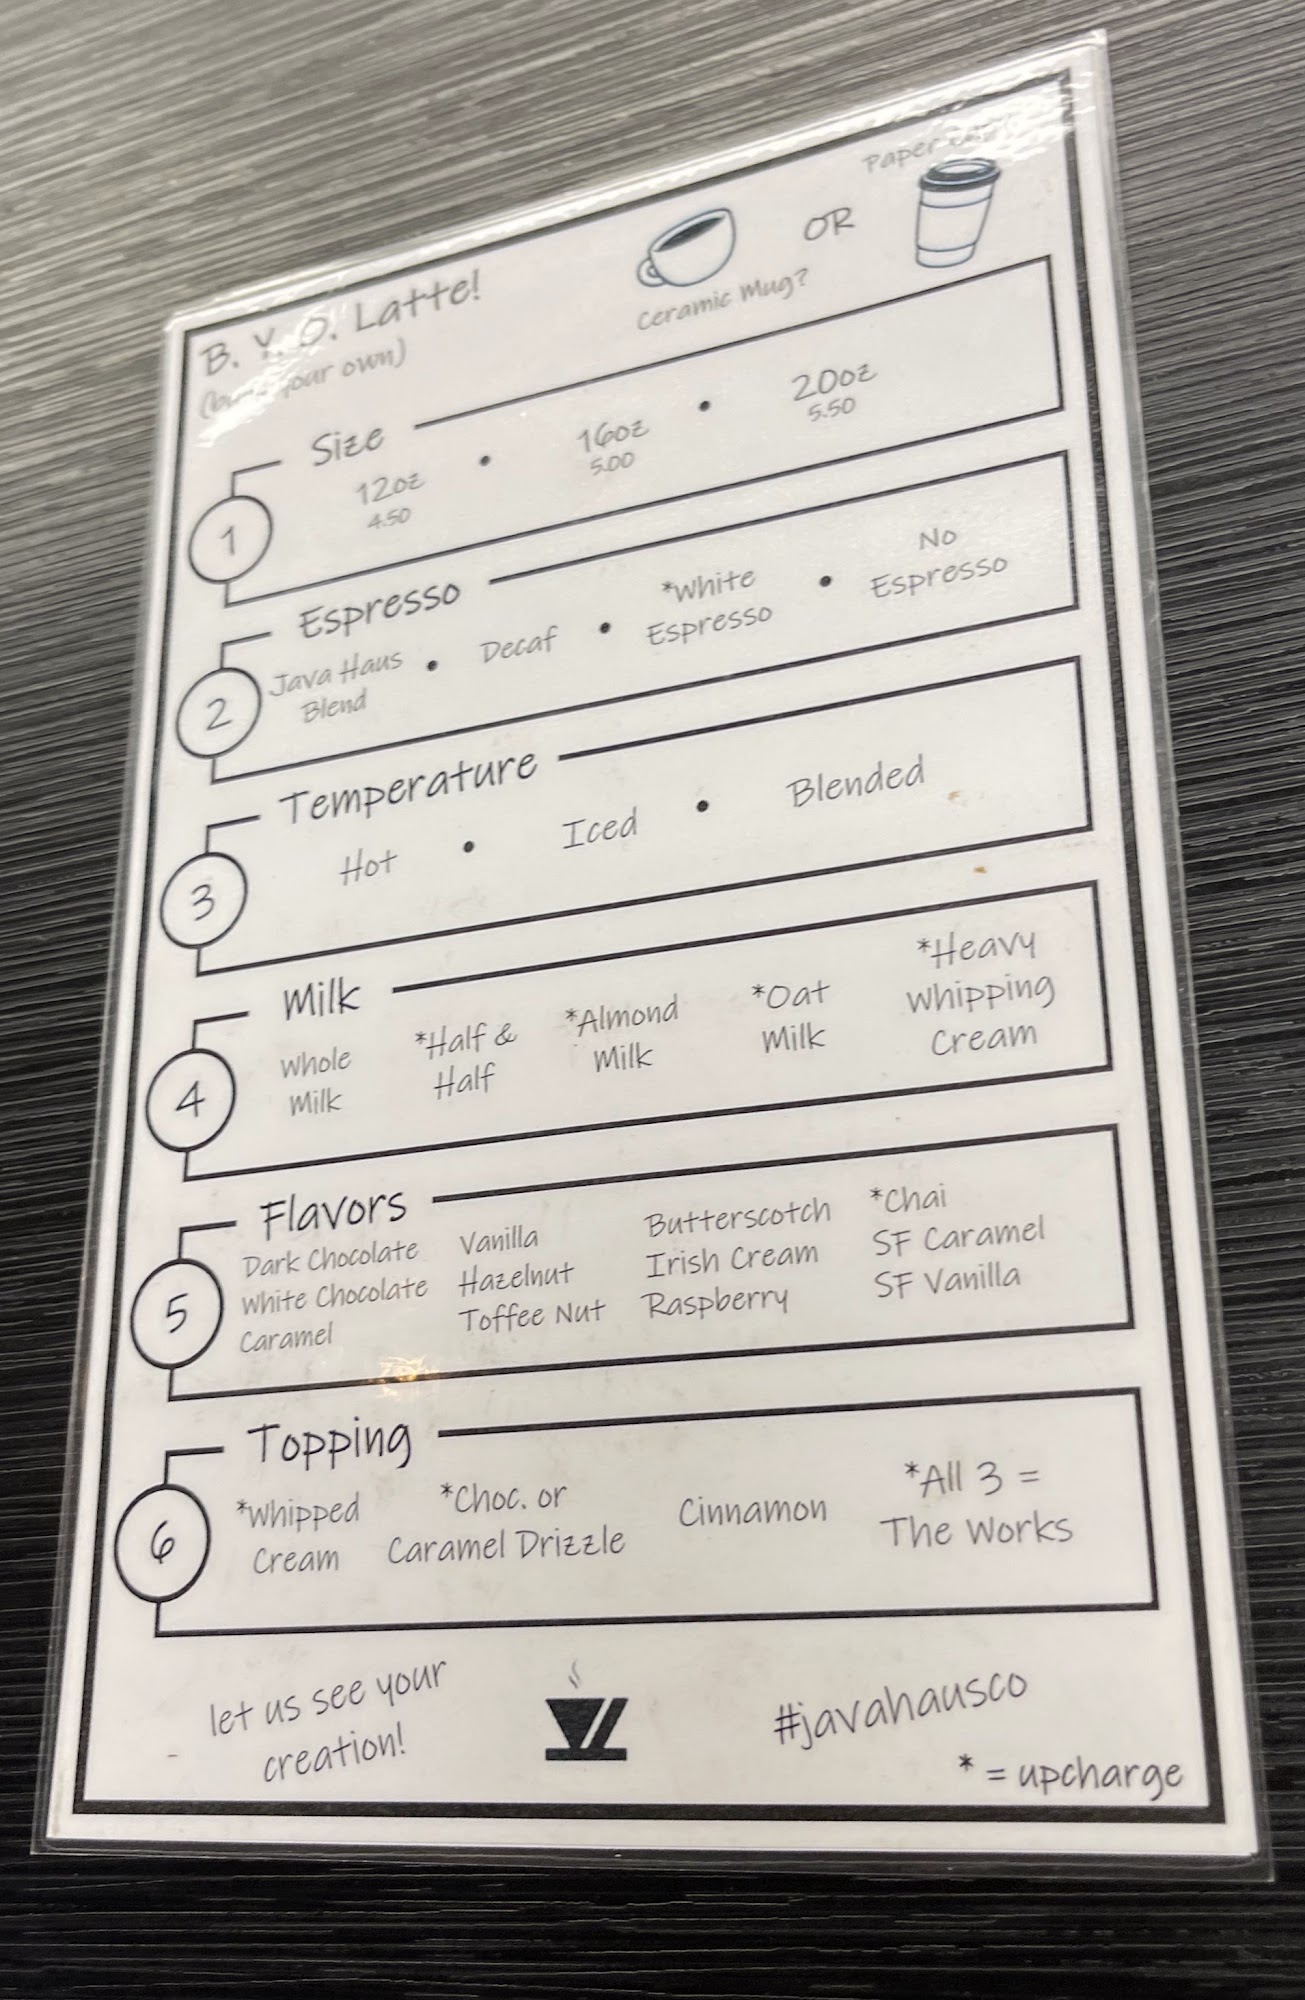 Paper
OR
Ceramic Mug?
B. Y. O. Latte!
your own)
Size
12oz • 16oz • 20oz
4.50 5.00 5.50
1
Espresso
Java Haus Blend • Decaf • *White Espresso • No Espresso
2
Temperature
Hot • Iced • Blended
3
Milk
Whole Milk *Half & Half *Almond Milk *Oat Milk *Heavy Whipping Cream
4
Flavors
Dark Chocolate Vanilla Butterscotch *Chai
White Chocolate Hazelnut Irish Cream SF Caramel
Caramel Toffee Nut Raspberry SF Vanilla
5
Topping
*Whipped Cream *Choc. or Caramel Drizzle Cinnamon *All 3 = The Works
6
let us see your
creation!
#javahausco
* = upcharge